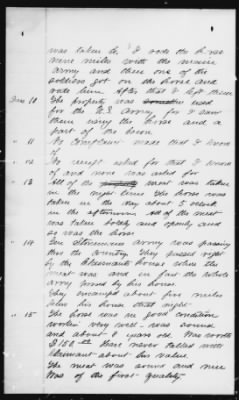 was taken to. I rode the horse
nine miles with the main
army and then one of the
soldiers got on the horse and
rode him. After that I left them
Ques 10 The property was used
for the U.S. Army, for I saw
them using the horse and a
part of the bacon
" 11 No complaint made that I know
of
" 12 No receipt asked for that I know
of and none was asked for
" 13 All of the meat was taken
in the night time. The horse was
taken in the day about 5 o'clock
in the afternoon. All of the meat
was taken boldly and openly and
so was the horse
" 14 Gen Stoneman's army was passing
thro the country. They passed right
by the Claimants house when the
meat was and in fact the whole
army passed by his house
They encamped about five miles
from his house that night
" 15 The horse was in good condition
worked very well, was sound
and about 8 years old. Was worth
$150.00 Have never talked with
Claimant about his value.
The meat was sound and nice
Was of the first quality